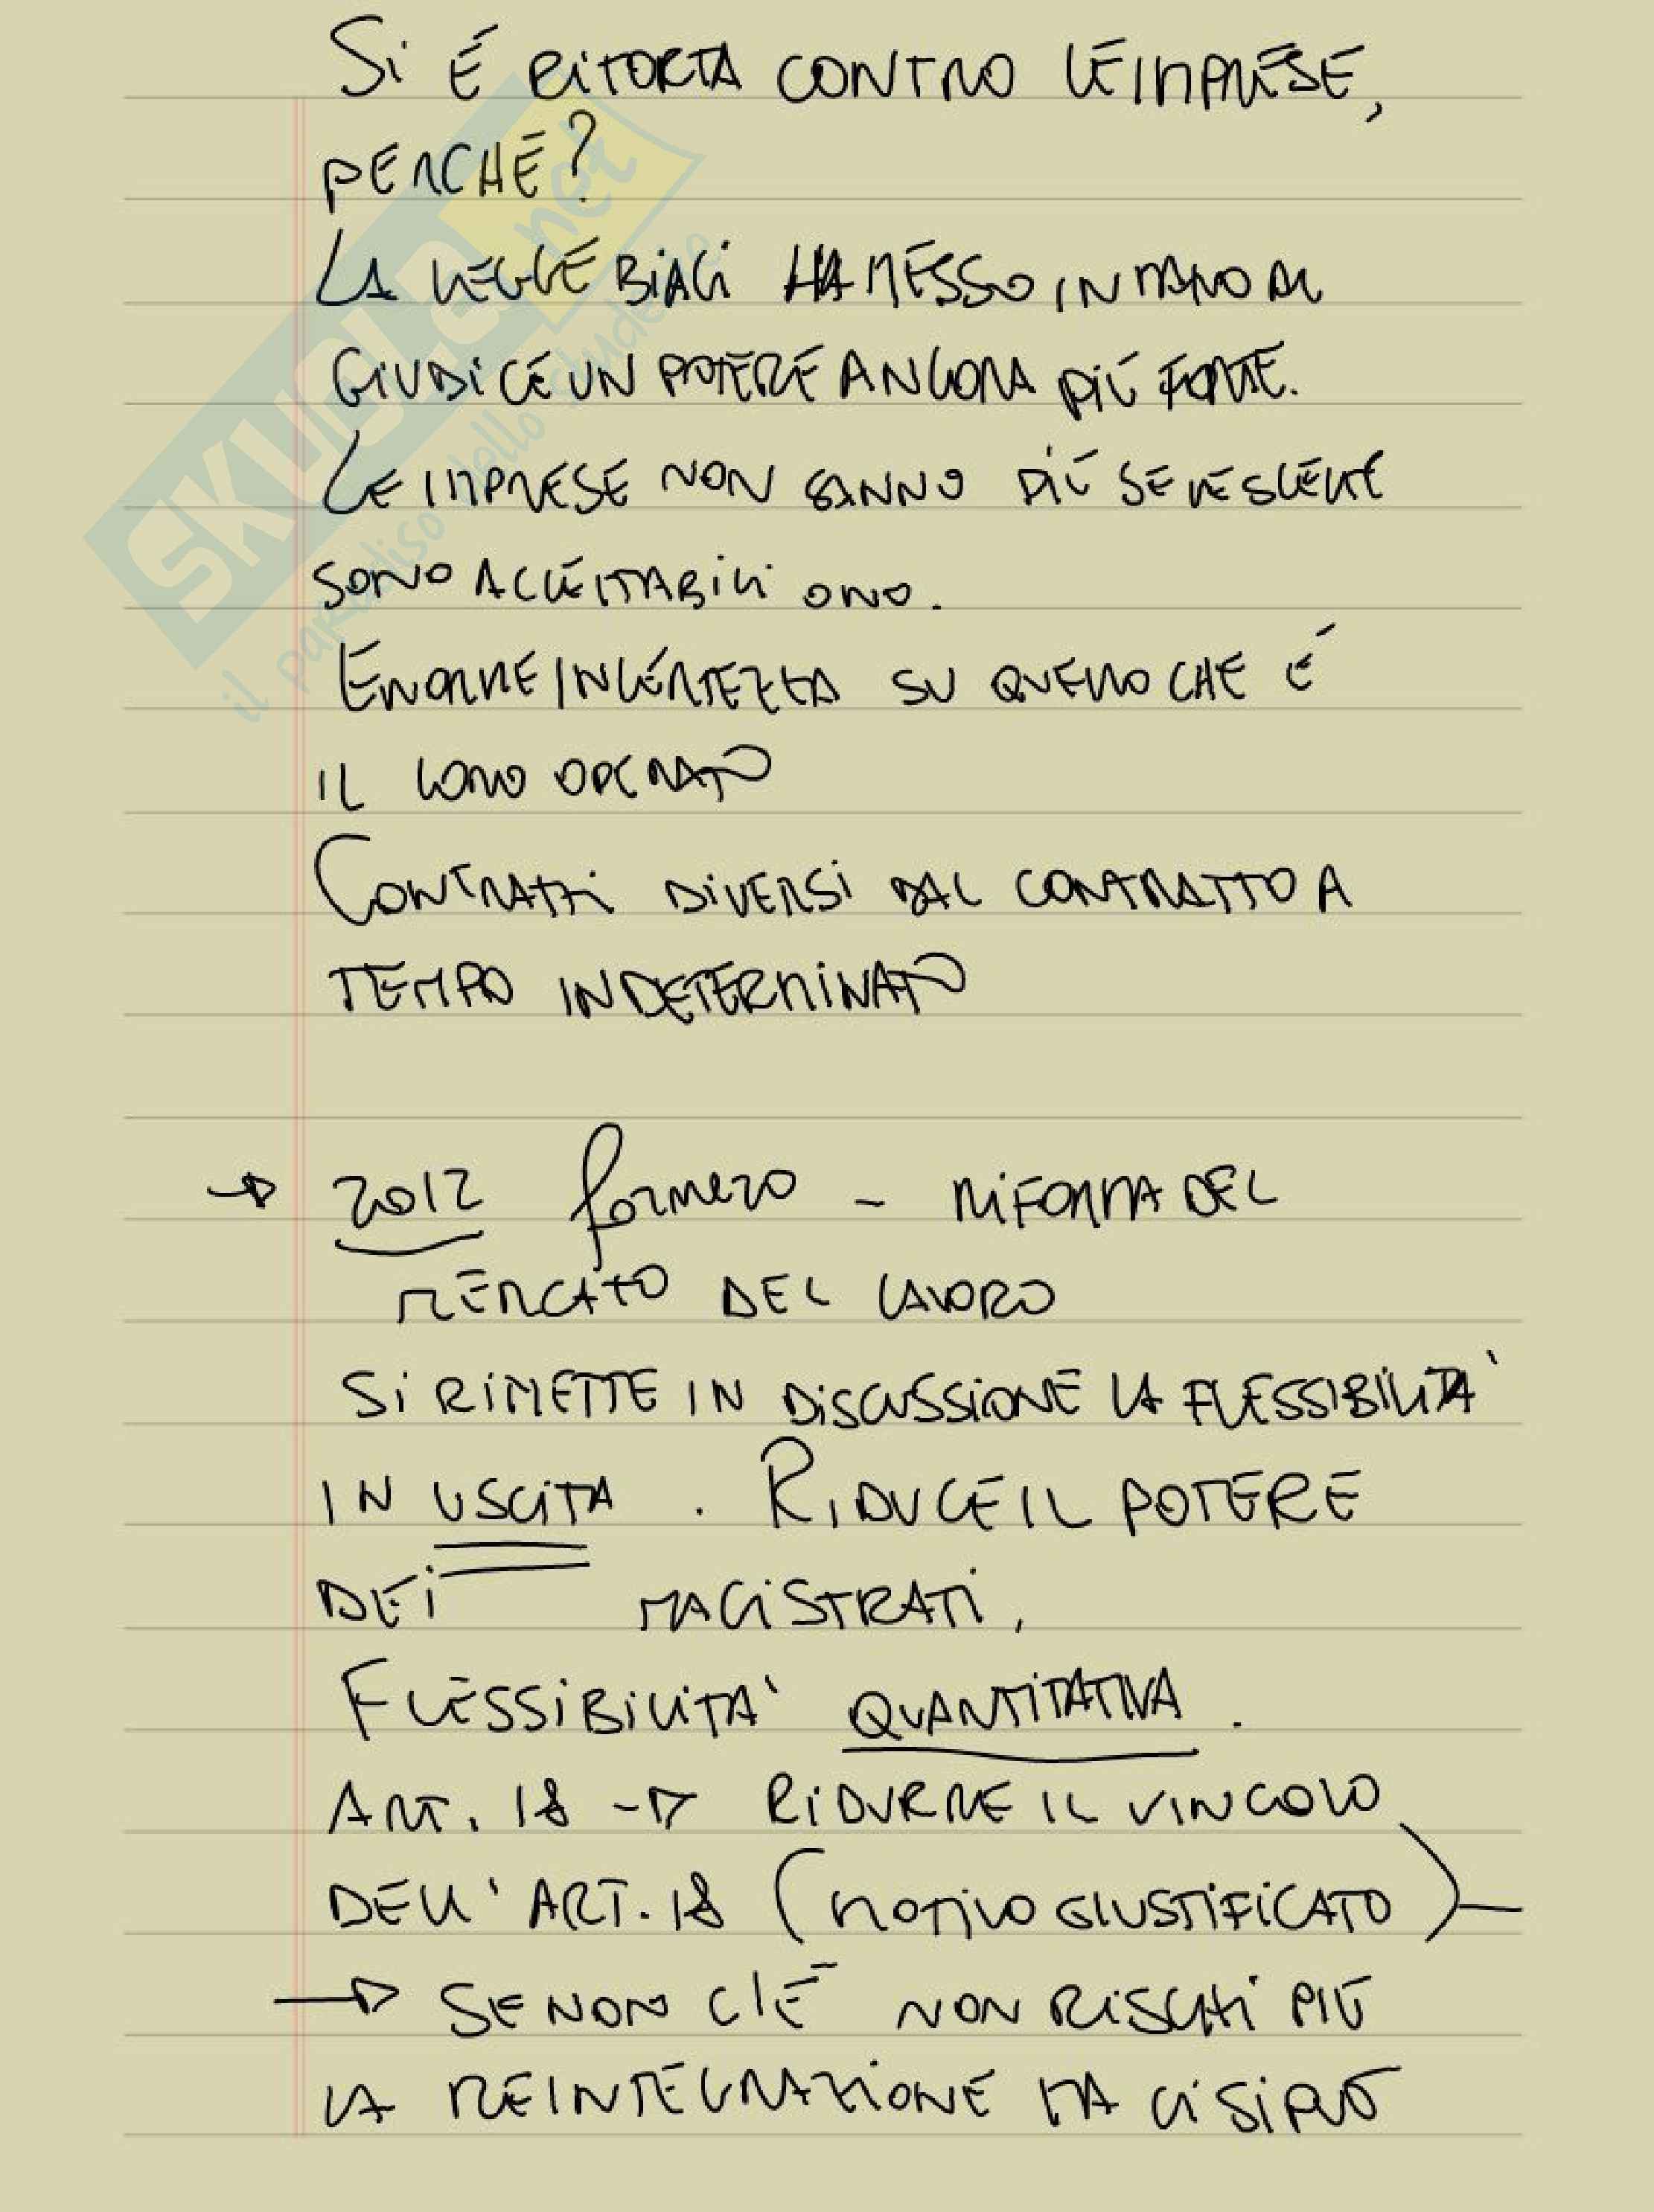 Si É RITORTA CONTRO LE IMPRESE,
PERCHÉ?
LA LEGGE BIAGI HA MESSO IN MANO AL
GIUDICE UN POTERE ANCORA PIÙ FORTE.
LE IMPRESE NON SANNO PIÙ SE LE SCELTE
SONO ACCETTABILI O NO.
ENORME INCERTEZZA SU QUELLO CHE É
IL LORO OPERATO
CONTRATTI DIVERSI DAL CONTRATTO A
TEMPO INDETERMINATO
→ 2012 fornero - RIFORMA DEL
MERCATO DEL LAVORO
SI RIMETTE IN DISCUSSIONE LA FLESSIBILITA'
IN USCITA. RIDUCE IL POTERE
DEI MAGISTRATI,
FLESSIBILITA' QUANTITATIVA.
ART. 18 → RIDURRE IL VINCOLO
DELL'ART. 18 (MOTIVO GIUSTIFICATO) —
→ SE NON C'É NON RISCHI PIÙ
LA REINTEGRAZIONE MA CI SI PUÒ
SKUOLA.net
il paradiso dello studente